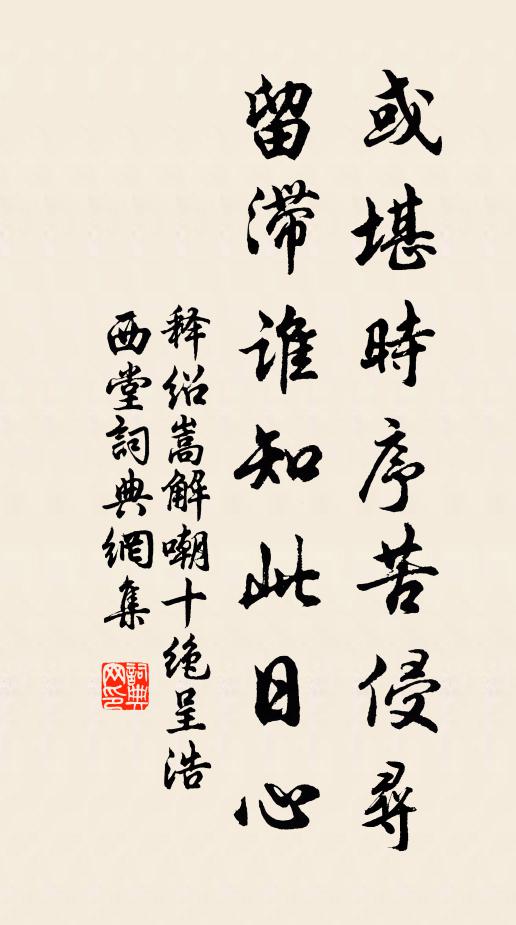 或堪時序苦侵尋
留滯誰知此日心
释绍嵩解嘲十绝呈浩
西堂詞典網集
詞典網印